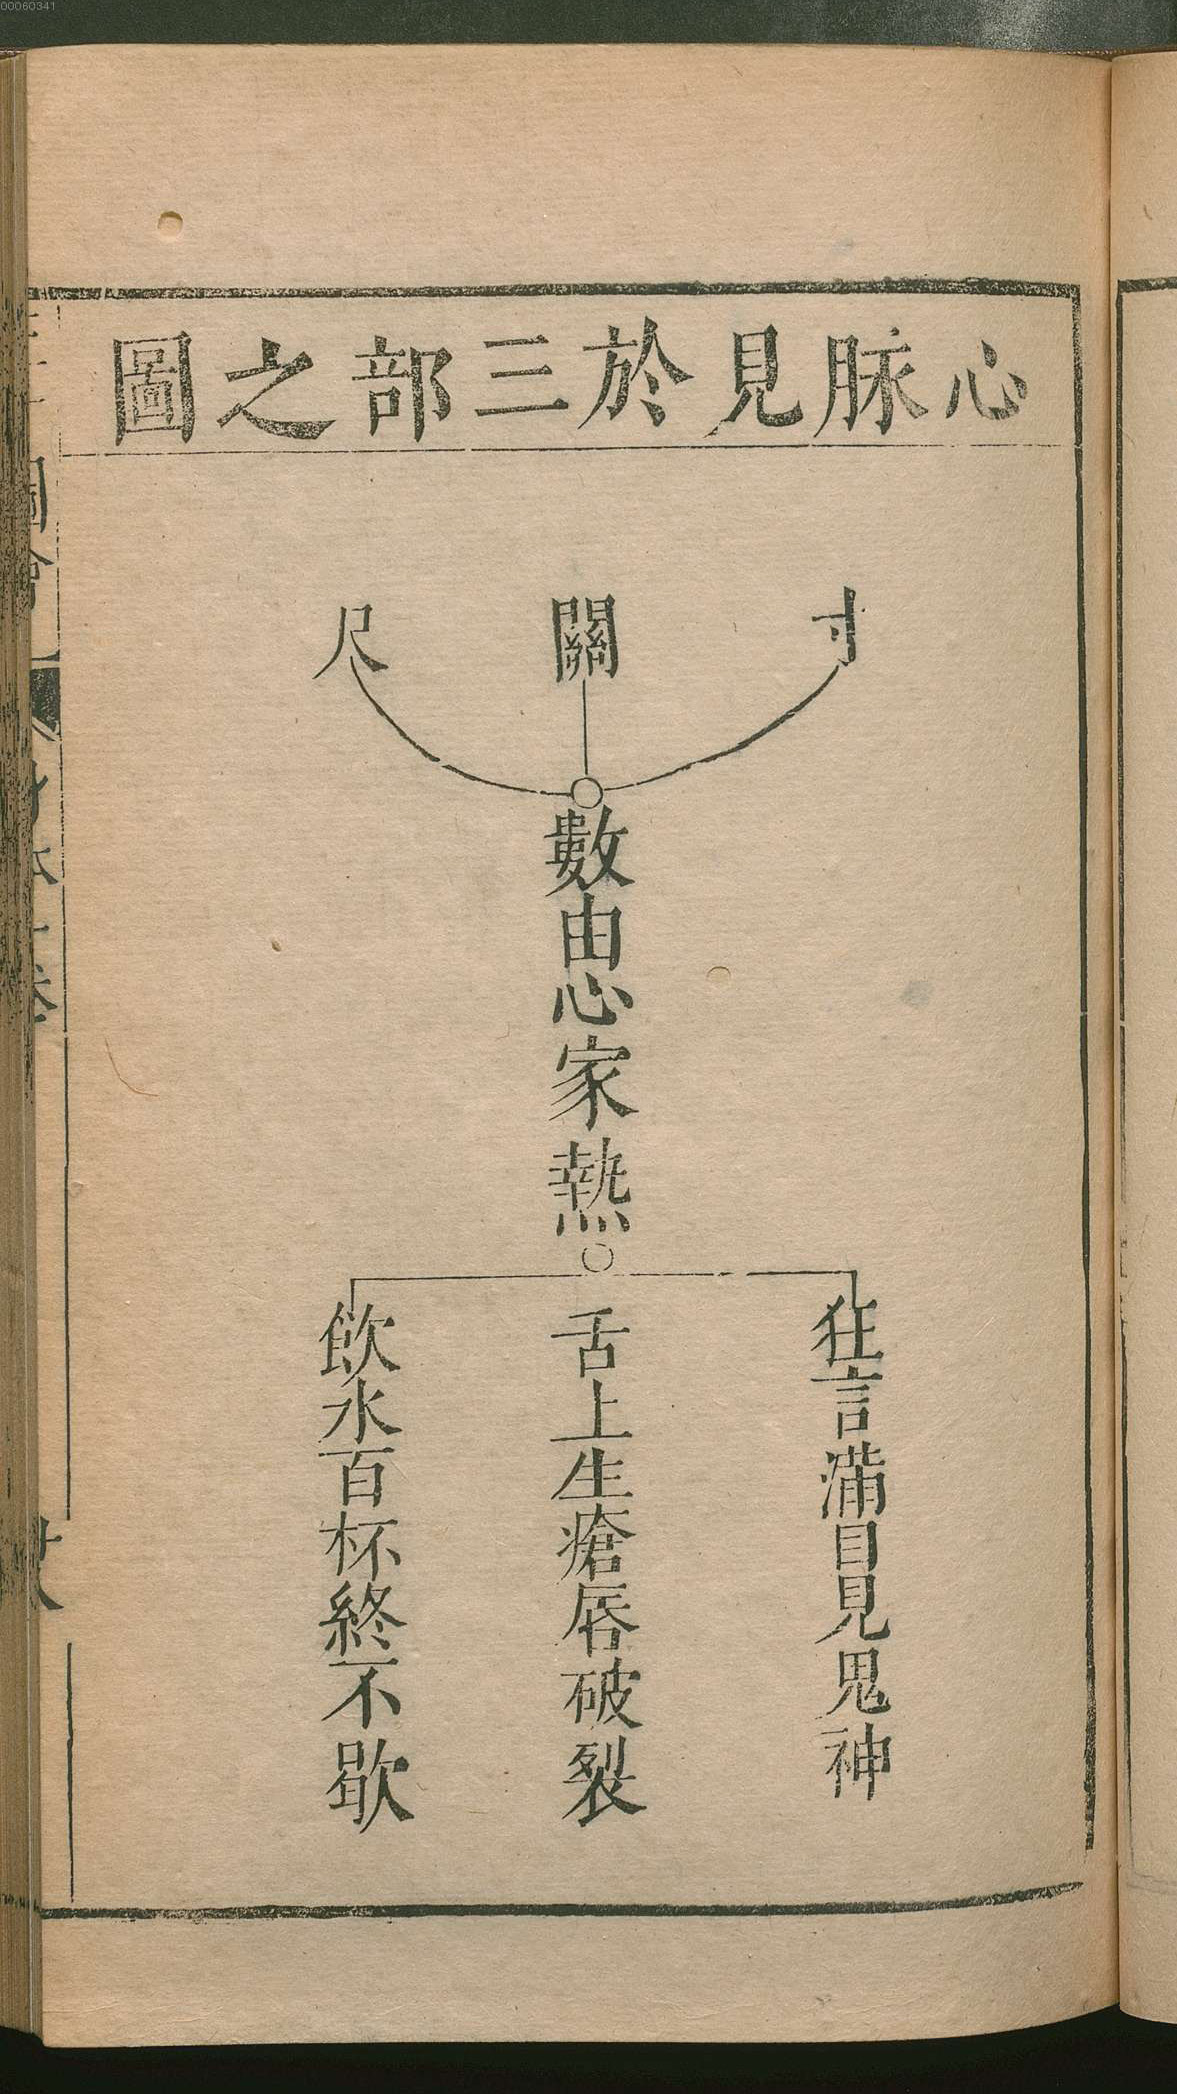 00060341
心脉見於三部之圖
寸
關
尺
數由心家熱
狂言滿目見鬼神
舌上生瘡唇破裂
飲水百杯終不歇
圖會
身體二卷